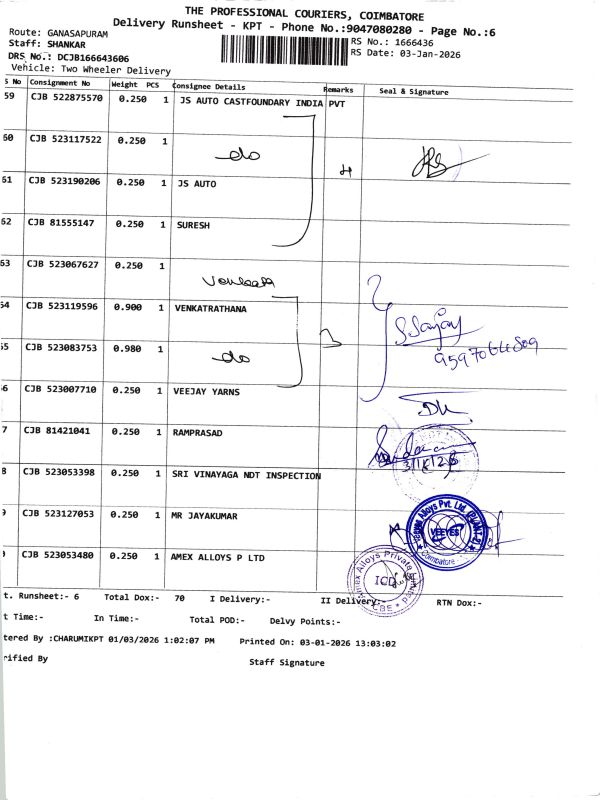 THE PROFESSIONAL COURIERS, COIMBATORE
Delivery Runsheet - KPT - Phone No.:9047080280 - Page No.:6
Route: GANASAPURAM
Staff: SHANKAR
RS No.: 1666436
DRS No.: DCJB166643606
RS Date: 03-Jan-2026
Vehicle: Two Wheeler Delivery
S No Consignment No Weight PCS Consignee Details Remarks Seal & Signature
59 CJB 522875570 0.250 1 JS AUTO CASTFOUNDARY INDIA PVT
60 CJB 523117522 0.250 1 do 4
61 CJB 523190206 0.250 1 JS AUTO
62 CJB 81555147 0.250 1 SURESH
63 CJB 523067627 0.250 1
54 CJB 523119596 0.900 1 VENKATRATHANA 3 S.Sanjay
55 CJB 523083753 0.980 1 do
56 CJB 523007710 0.250 1 VEEJAY YARNS
7 CJB 81421041 0.250 1 RAMPRASAD
8 CJB 523053398 0.250 1 SRI VINAYAGA NDT INSPECTION
9 CJB 523127053 0.250 1 MR JAYAKUMAR
VEEYES
Coimbatore
CJB 523053480 0.250 1 AMEX ALLOYS P LTD
Amex Alloys Private
CBE
t. Runsheet:- 6 Total Dox:- 70 I Delivery:- II Delivery:- RTN Dox:-
t Time:- In Time:- Total POD:- Delvy Points:-
tered By :CHARUMIKPT 01/03/2026 1:02:07 PM Printed On: 03-01-2026 13:03:02
rified By Staff Signature